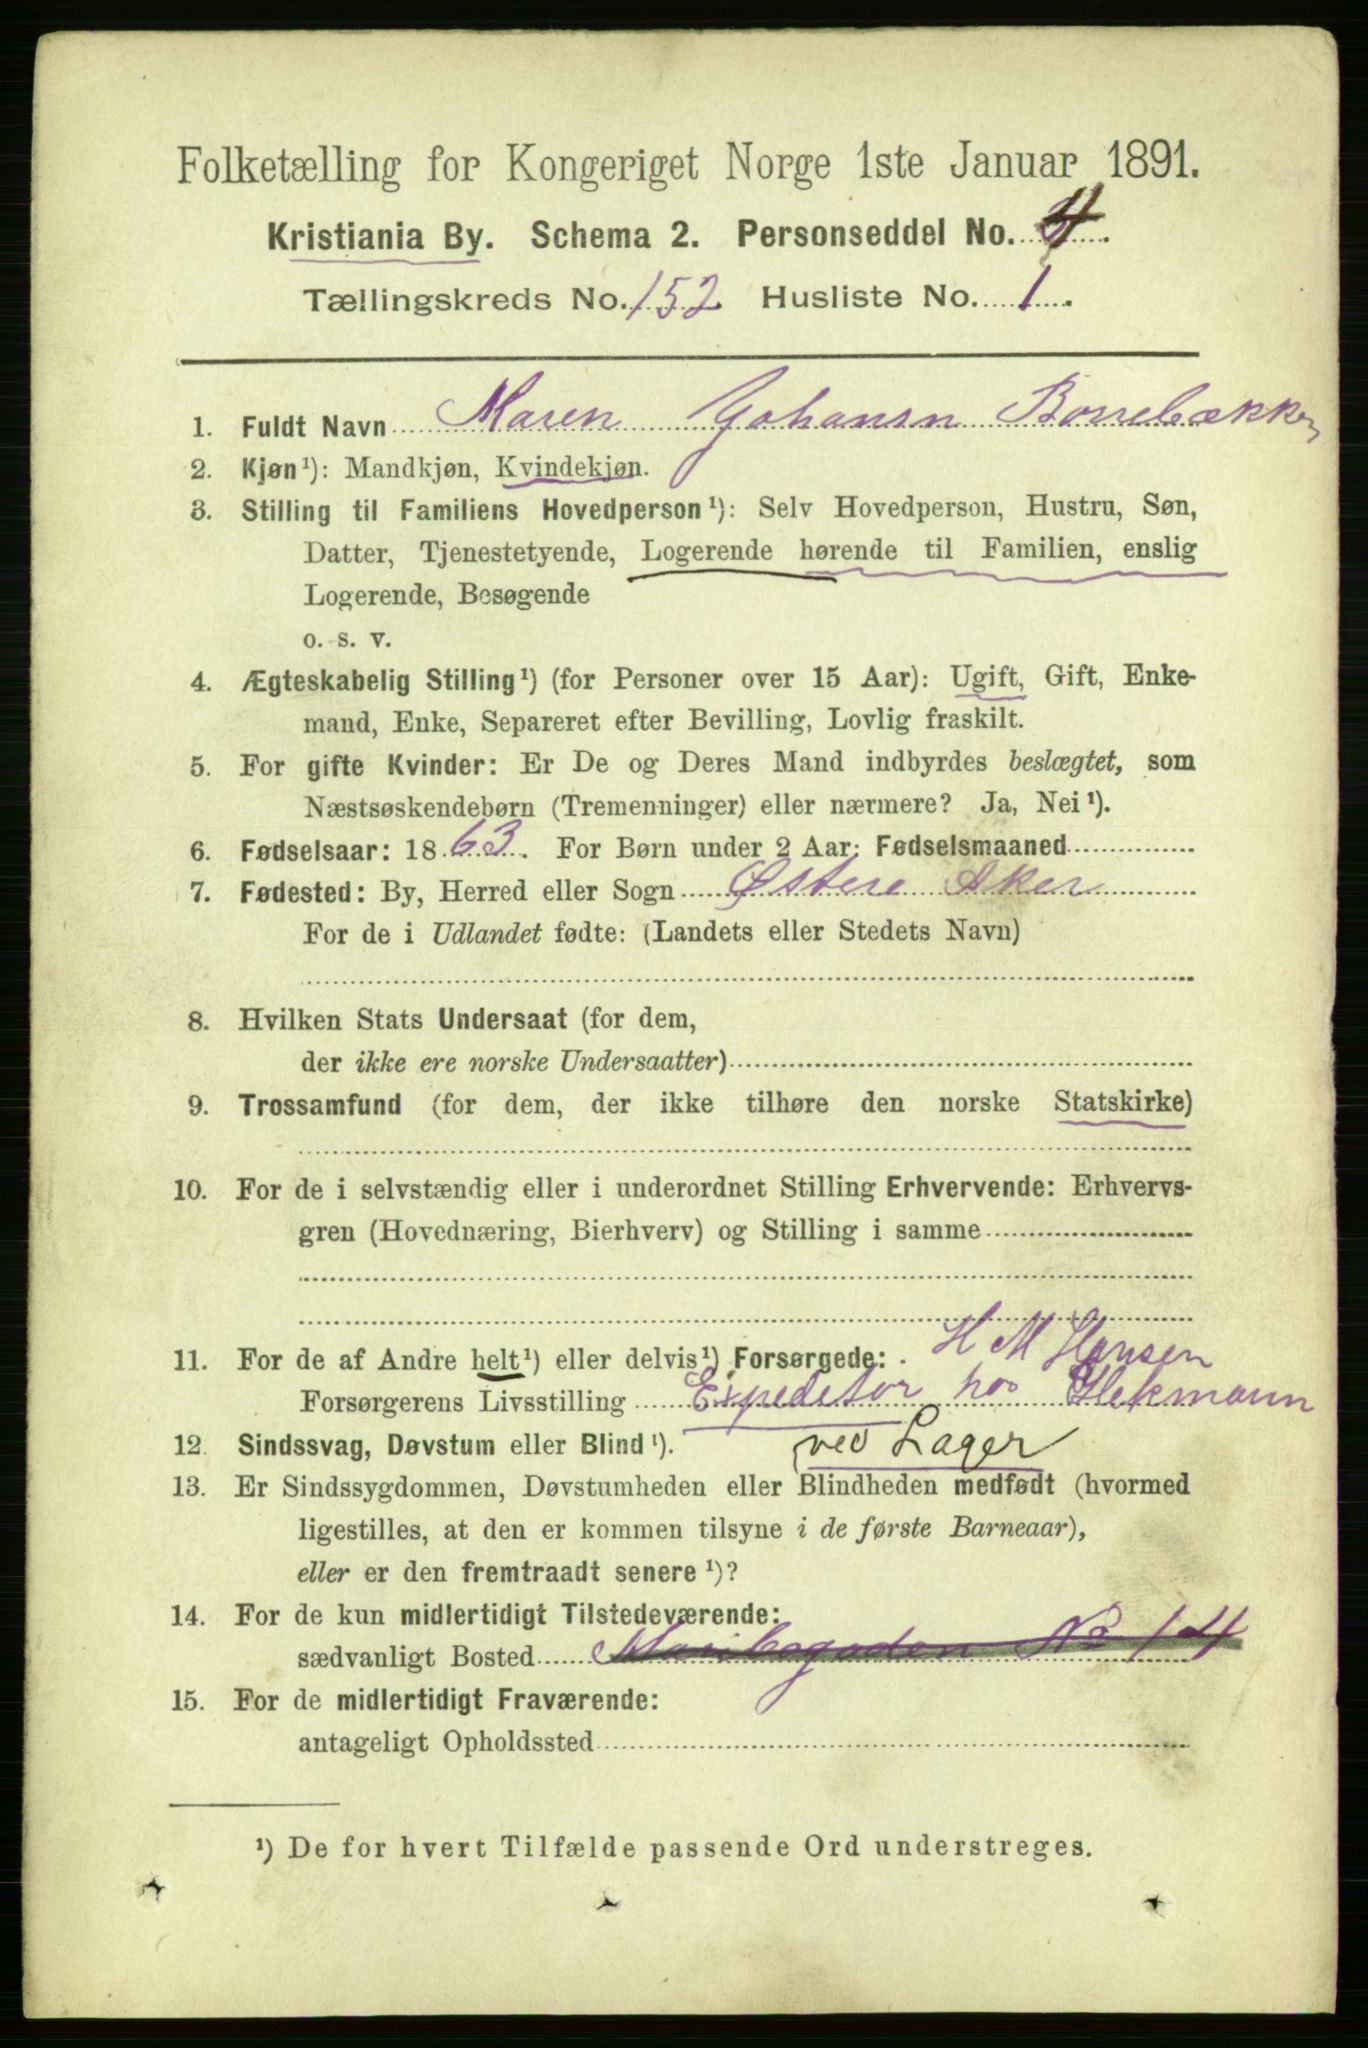 Folketælling for Kongeriget Norge 1ste Januar 1891.
Kristiania By. Schema 2. Personseddel No. 4.
Tællingskreds No. 152 Husliste No. 1.
1. Fuldt Navn Maren Johansn Borrebækken
2. Kjøn¹): Mandkjøn, Kvindekjøn.
3. Stilling til Familiens Hovedperson¹): Selv Hovedperson, Hustru, Søn,
Datter, Tjenestetyende, Logerende hørende til Familien, enslig
Logerende, Besøgende
o. s. v.
4. Ægteskabelig Stilling¹) (for Personer over 15 Aar): Ugift, Gift, Enke-
mand, Enke, Separeret efter Bevilling, Lovlig fraskilt.
5. For gifte Kvinder: Er De og Deres Mand indbyrdes beslægtet, som
Næstsøskendebørn (Tremenninger) eller nærmere? Ja, Nei¹).
6. Fødselsaar: 1863. For Børn under 2 Aar: Fødselsmaaned
7. Fødested: By, Herred eller Sogn Østere Aker
For de i Udlandet fødte: (Landets eller Stedets Navn)
8. Hvilken Stats Undersaat (for dem,
der ikke ere norske Undersaatter)
9. Trossamfund (for dem, der ikke tilhøre den norske Statskirke)
10. For de i selvstændig eller i underordnet Stilling Erhvervende: Erhvervs-
gren (Hovednæring, Bierhverv) og Stilling i samme
11. For de af Andre helt¹) eller delvis¹) Forsørgede: H M Hansen
Forsørgerens Livsstilling Expeditor hos
12. Sindssvag, Døvstum eller Blind¹). ved Lager
13. Er Sindssygdommen, Døvstumheden eller Blindheden medfødt (hvormed
ligestilles, at den er kommen tilsyne i de første Barneaar),
eller er den fremtraadt senere¹)?
14. For de kun midlertidigt Tilstedeværende:
sædvanligt Bosted Maribogaden No 14
15. For de midlertidigt Fraværende:
antageligt Opholdssted
¹) De for hvert Tilfælde passende Ord understreges.